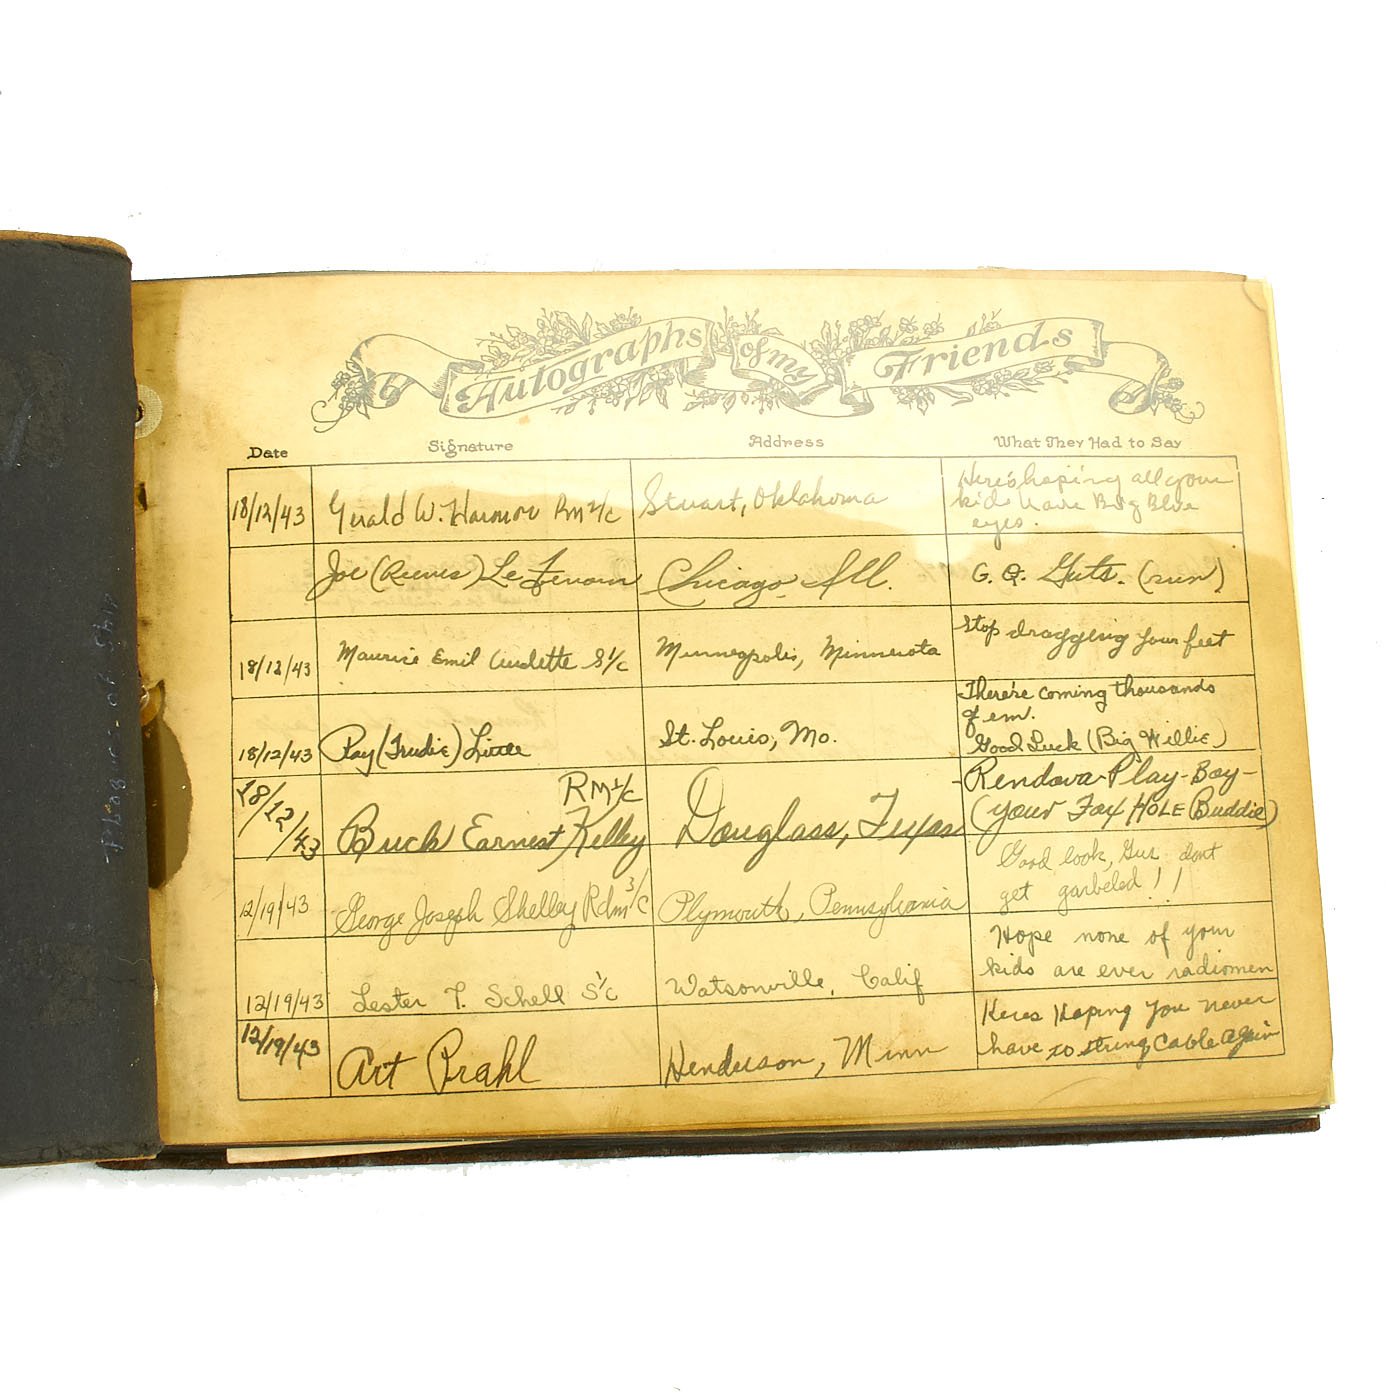 Autographs of my Friends
Date Signature Address What They Had to Say
18/12/43 Gerald W. Harmon RM 2/c Stuart, Oklahoma Here's hoping all your
kids have Big Blue
eyes.
Joe (Reeves) Chicago Ill. G. Q. Guts. (run)
18/12/43 Maurice Emil Audette S 1/c Minneapolis, Minnesota Stop dragging your feet
18/12/43 Ray (Trudie) Little St. Louis, Mo. There're coming thousands
of em.
Good Luck (Big Willie)
18/12/43 Buck Earnest Kelley RM 1/c Douglass, Texas Rendova-Play-Boy-
(your Fox HOLE Buddie)
12/19/43 George Joseph Shelley Rdm 3/c Plymouth, Pennsylvania Good look, Gus dont
get garbeled!!
12/19/43 Lester T. Schell S 1/c Watsonville, Calif Hope none of your
kids are ever radiomen
12/19/43 Art Prahl Henderson, Minn Heres Hoping you never
have to string cable again